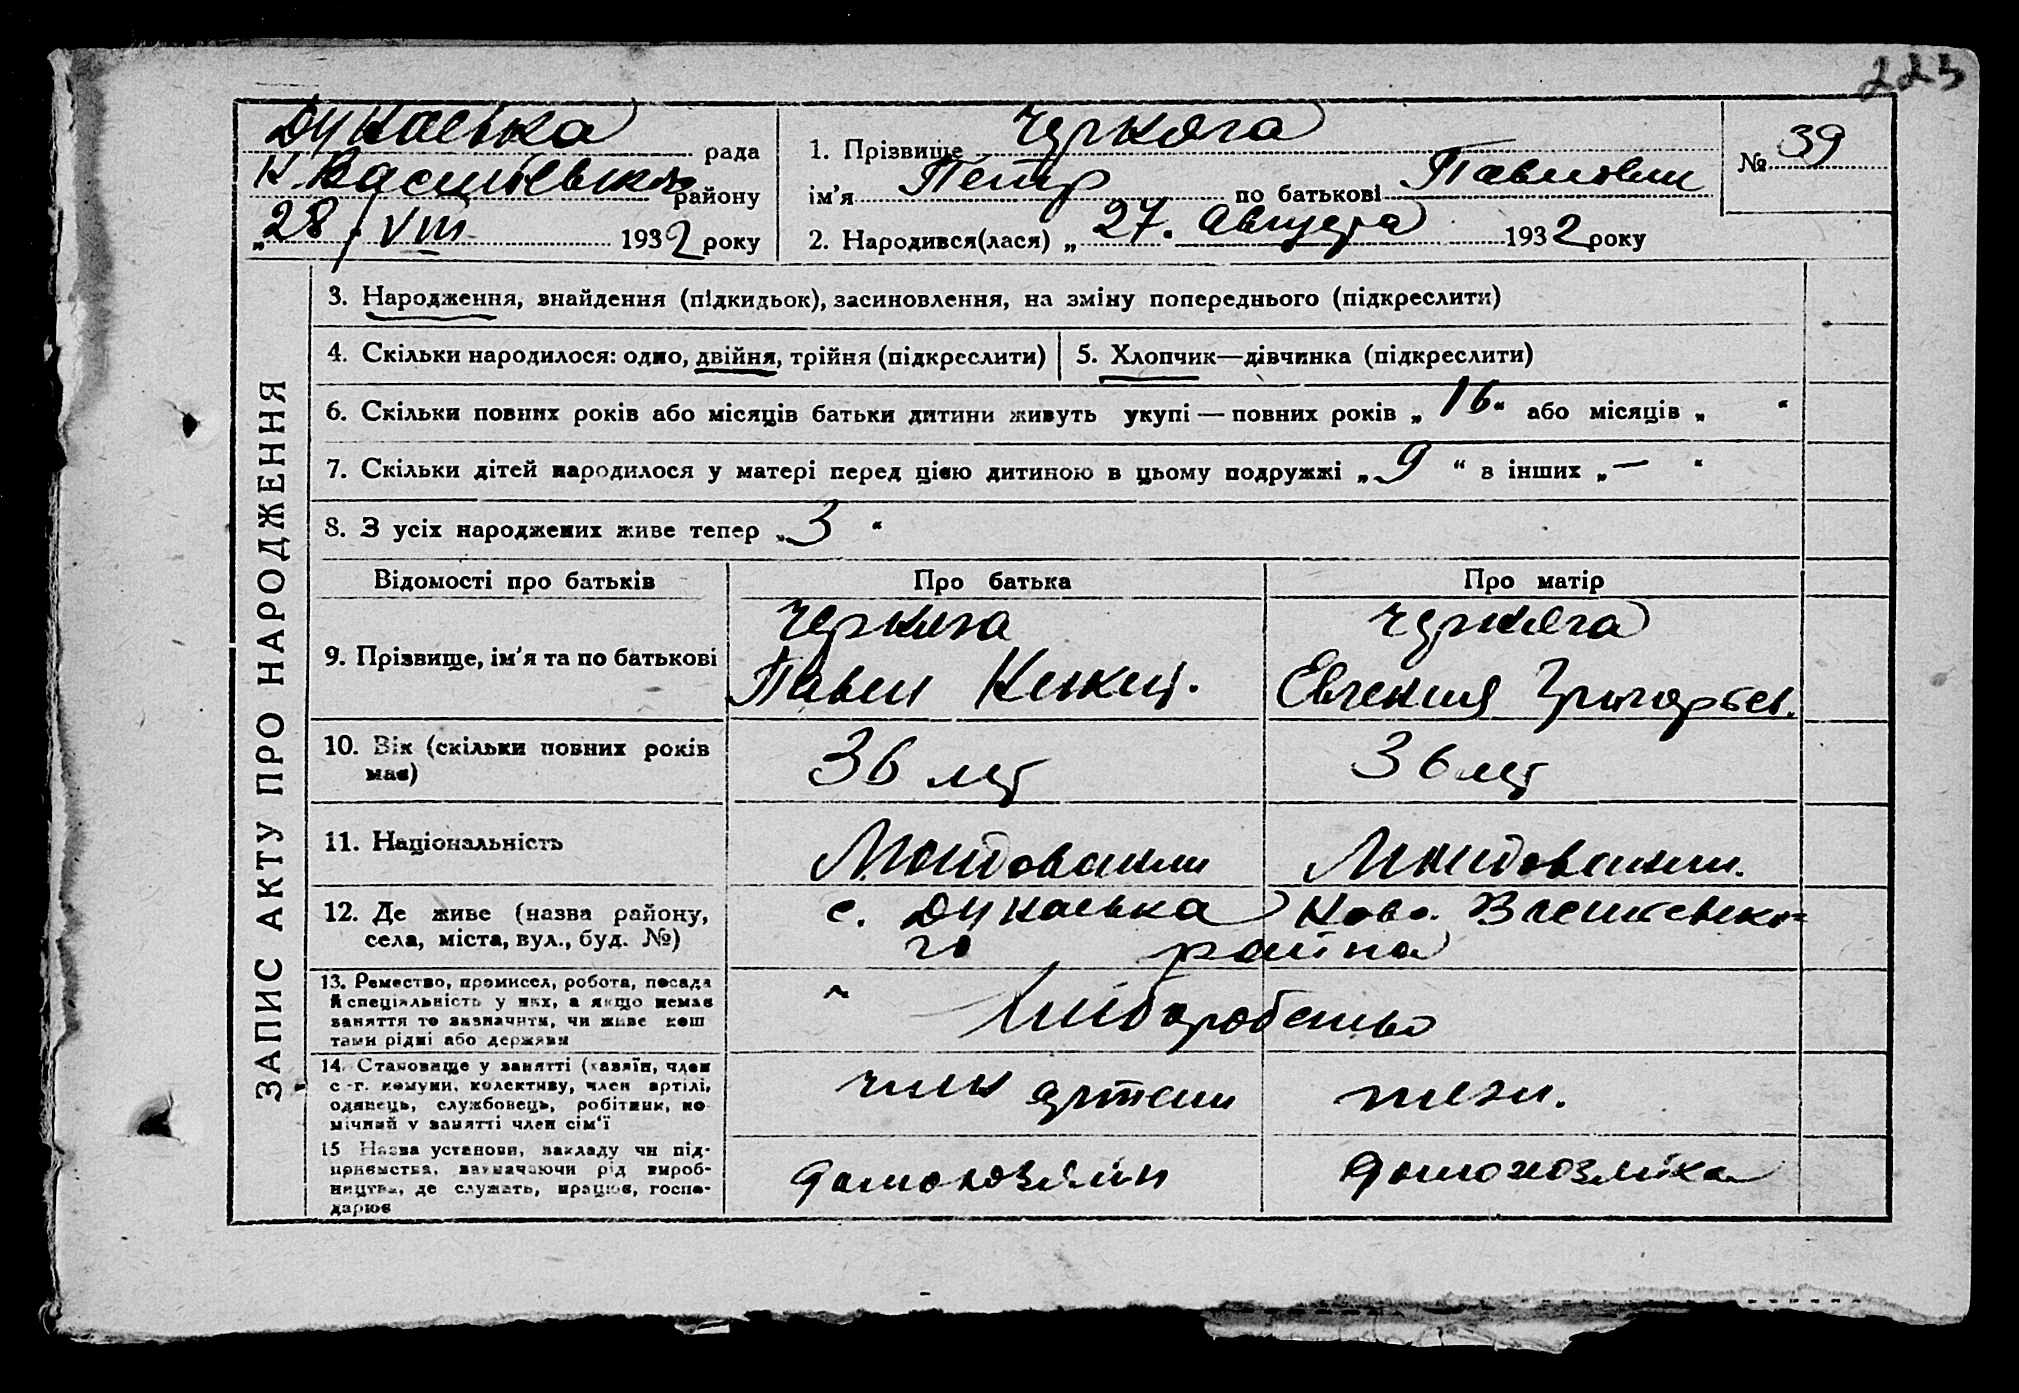 223
Дунаевка рада
Н Василівськ району
„28 / VIII 1932 року
1. Прізвище Черкяга
ім'я Петр по батькові Павлович
2. Народився(лася) „ 27. Августа 1932 року
№ 39
ЗАПИС АКТУ ПРО НАРОДЖЕННЯ
3. Народження, знайдення (підкидьок), засиновлення, на зміну попереднього (підкреслити)
4. Скільки народилося: одно, двійня, трійня (підкреслити)
5. Хлопчик—дівчинка (підкреслити)
6. Скільки повних років або місяців батьки дитини живуть укупі — повних років „ 16 “ або місяців „ “
7. Скільки дітей народилося у матері перед цією дитиною в цьому подружжі „ 9 “ в інших „ — “
8. З усіх народжених живе тепер „ 3 “
Відомості про батьків
Про батька
Про матір
9. Прізвище, ім'я та по батькові
Черкяга
Павел
Черкяга
Евгения Григорьев.
10. Вік (скільки повних років
має)
36 лет
36 лет
11. Національність
Молдованин
Молдованин.
12. Де живе (назва району,
села, міста, вул., буд. №)
с. Дунаевка Ново. Васильевско-
го района
13. Ремество, промисел, робота, посада
й спеціяльність у них, а якщо немає
заняття то зазначити, чи живе кош
тами рідні або держави
Хлиборобство
14. Становище у занятті (хазяїн, член
с.-г. комуни, колективу, член артілі,
одинець, службовець, робітник, по
мічний у занятті член сім'ї
член артели
15 Назва установи, закладу чи під-
приємства, зазначаючи рід вироб-
ництва, де служить, працює, госпо-
дарює
домохозяин
домохозяйка